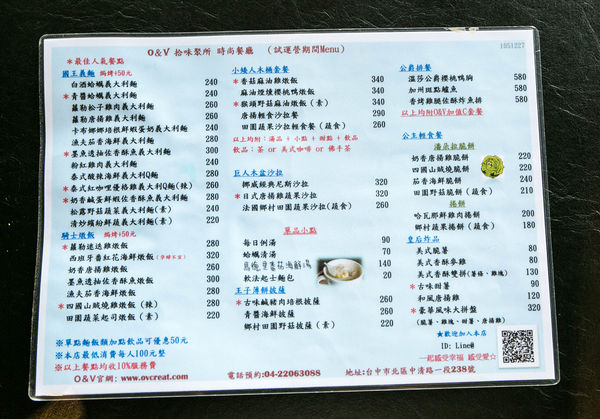 O&V 拾味聚所 時尚餐廳 (試運營期間Menu)
1051227
*最佳人氣餐點
國王義麵 焗烤+50元
白酒蛤蠣義大利麵 240
*青醬蛤蠣義大利麵 240
蘿勒松子雞肉義大利麵 240
蘿勒唐揚雞義大利麵 240
卡布娜娜培根鮮蝦蛋奶義大利麵 240
漁夫茄香海鮮義大利麵 280
*墨魚透抽香酥魚義大利麵 300
粉紅雞肉義大利麵 240
泰式酸辣海鮮義大利Q麵 280
*泰式紅咖哩優格雞義大利Q麵(辣) 260
*奶香鹹蛋鮮蝦佐香酥魚義大利麵 300
松露野菇蔬菜義大利麵(素) 240
清炒繽紛鮮蔬義大利麵(素) 220
騎士燉飯 焗烤+50元
*蘿勒迷迭雞燉飯 280
西班牙番紅花海鮮燉飯 320
奶香唐揚雞燉飯 260
墨魚透抽香酥魚燉飯 320
漁夫茄香海鮮燉飯 280
*四國山賊燒雞燉飯(辣) 280
田園蔬菜起司燉飯(素) 220
※單點麵飯類加點飲品可優惠50元
※本店最低消費每人100元整
※以上餐點均收10%服務費
O&V官網: www.ovcreat.com
小矮人木桶套餐
*香菇麻油雞燉飯 340
麻油煙燻櫻桃鴨燉飯 340
*猴頭野菇麻油燉飯(素) 340
唐揚輕食沙拉餐 290
田園蔬果沙拉輕食餐(蔬食) 260
以上均附:湯品 + 小點 + 甜點 + 飲品
飲品:茶 or 美式咖啡 or 佛手茶
巨人木盆沙拉
挪威經典尼斯沙拉 320
*日式唐揚雞蔬果沙拉 260
法國鄉村田園蔬果沙拉(蔬食) 240
單品小點
每日例湯 90
蛤蠣清湯 70
軟法起士麵包 40
王子薄餅披薩
*古味鹹豬肉培根披薩 260
青醬海鮮披薩 260
鄉村田園野菇披薩(素) 220
電話預約:04-22063088
公爵排餐
溫莎公爵櫻桃鴨胸 580
加州斑點鱸魚 580
香烤雞腿佐酥炸魚排 580
以上均附O&V加值C套餐
公主輕食餐
潘朵拉脆餅
奶香唐揚雞脆餅 240
四國山賊燒脆餅 240
茄香海鮮脆餅 240
田園野菇脆餅(蔬食) 210
捲餅
哈瓦那鮮雞肉捲餅 200
鄉村蔬果捲餅(蔬食) 180
皇后炸品
美式脆薯 90
美式香酥麥雞 90
美式香酥雙拼(薯條、雞塊) 120
*古味甜薯 90
和風唐揚雞 120
*豪華風味大拼盤 320
(脆薯、雞塊、甜薯、唐揚雞)
★歡迎加入本店
ID: Line@
一起感受幸福 感受愛☆
地址:台中市北區中清路一段238號